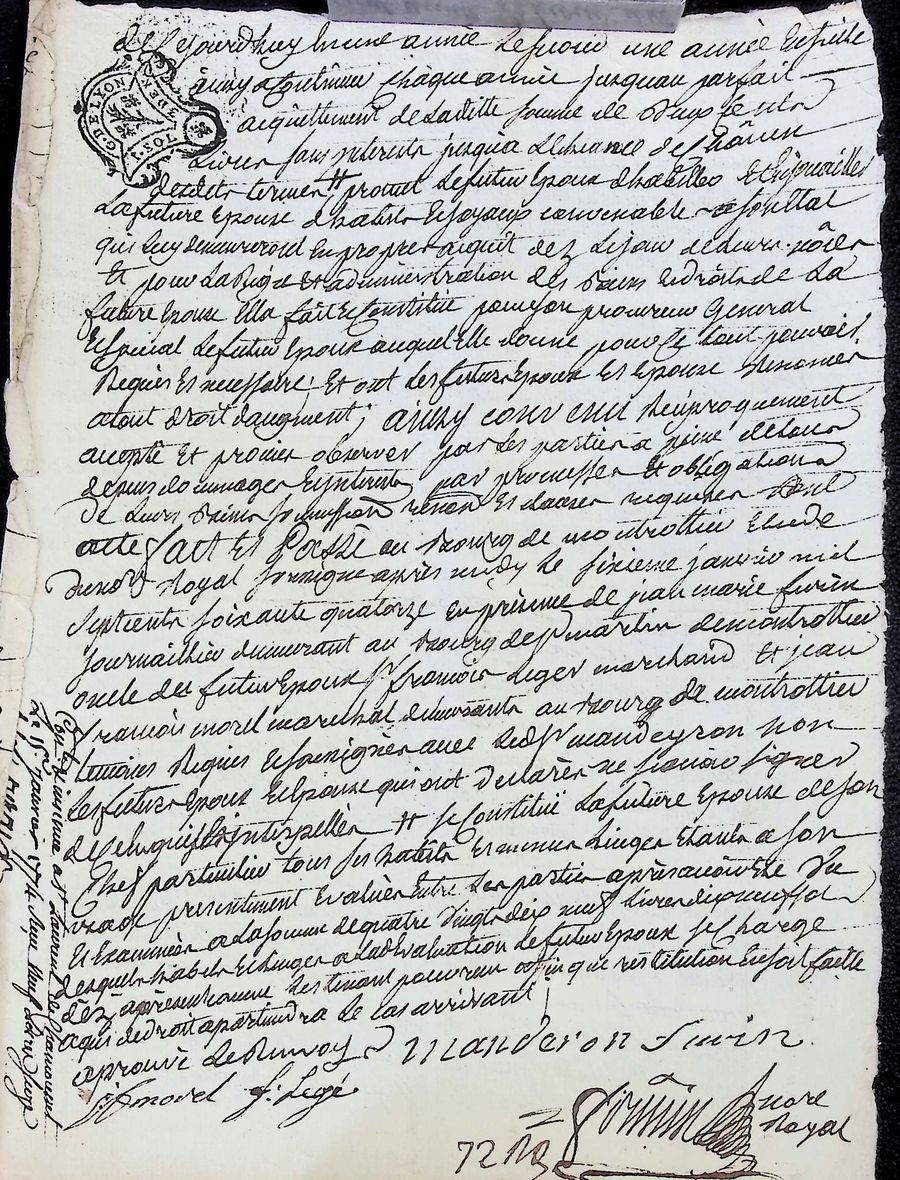 de ce jourdhuy en une année le second une année ensuitte
ainsy a continuer chaque année jusquau parfait
G. DE LYON
2 DEN.
1 S. 0 L.
aiquittement de laditte somme de deux cents
Livres sans interests jusqua lechéance de chacun
desdits termes promet le futur Epoux d'habiller et Enjouailler
La future Epouse d'habits et joyaux convenable a son Etat
qui luy demeureront en propre aiquit dez le jour de leurs nôces
Et pour la Régie et administration des biens et droits de La
future Epouse Elle fait et Constitue pour son procureur General
Et special le futur Epoux auquel Elle donne pour ce tout pouvoir
Requis et necessaire; Et ont les futurs Epoux et Epouse Renoncés
a tout droit daugment; ainsy convenu Réciproquement
accepté Et promis observer par les parties a peine de tous
depens dommages et interests par promesses Et obligations
de Leurs biens soumissions renons et clauses requises dont
acte fait et Passé au bourg de montrottier Etude
du nore Royal soussigné après midy le sixieme janvier mil
septcents soixante quatorze en présence de jean marie furin
journaillier demeurant au bourg de st martin de montrottier
oncle du futur Epoux sr francois Leger marchand Et jean
francois morel marechal demeurants au bourg de montrottier
temoins Requis et soussignés avec ledit sr mandeyron non
les futurs Epoux et Epouse qui ont déclarés ne scavoir signer
de ce enquis et interpellés # se Constitüe La future Epouse de son
Chef particulier tous ses habits et menus Linges Etants a son
usage presentement Evalués Entre les parties après avoir Eté Vu
Et Examinés a la somme de quatre vingts dix neuf Livres dix neuf sols
desquels habits et Linges a Ladte Evaluation le futur Epoux se Charge
dèz aprésent comme les tenant pour vue affin que restitution En soit faitte
a qui de droit apartiendra le cas arrivant
aprouvé le Renvoy mandéron furin
J: f morel f: Legé
nore
Royal
72 Rd
Le 15 janvier 1774 Reçu neuf Livres